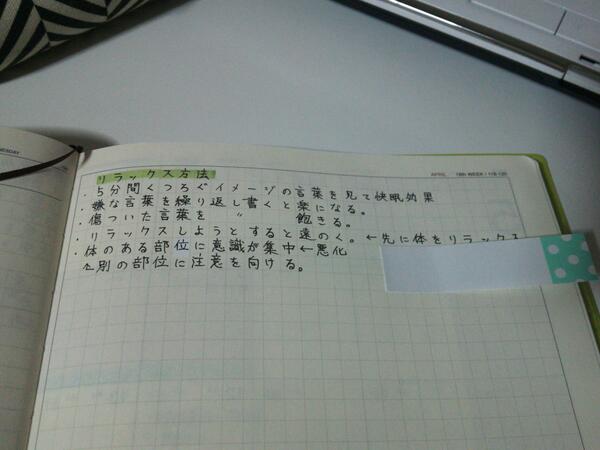 APRIL 18th WEEK / 118-120
リラックス方法
・5分間くつろぐイメージの言葉を見て快眠効果
・嫌な言葉を繰り返し書くと楽になる。
・傷ついた言葉を 〃 飽きる。
・リラックスしようとすると遠のく。←先に体をリラックス
・体のある部位に意識が集中←悪化
別の部位に注意を向ける。